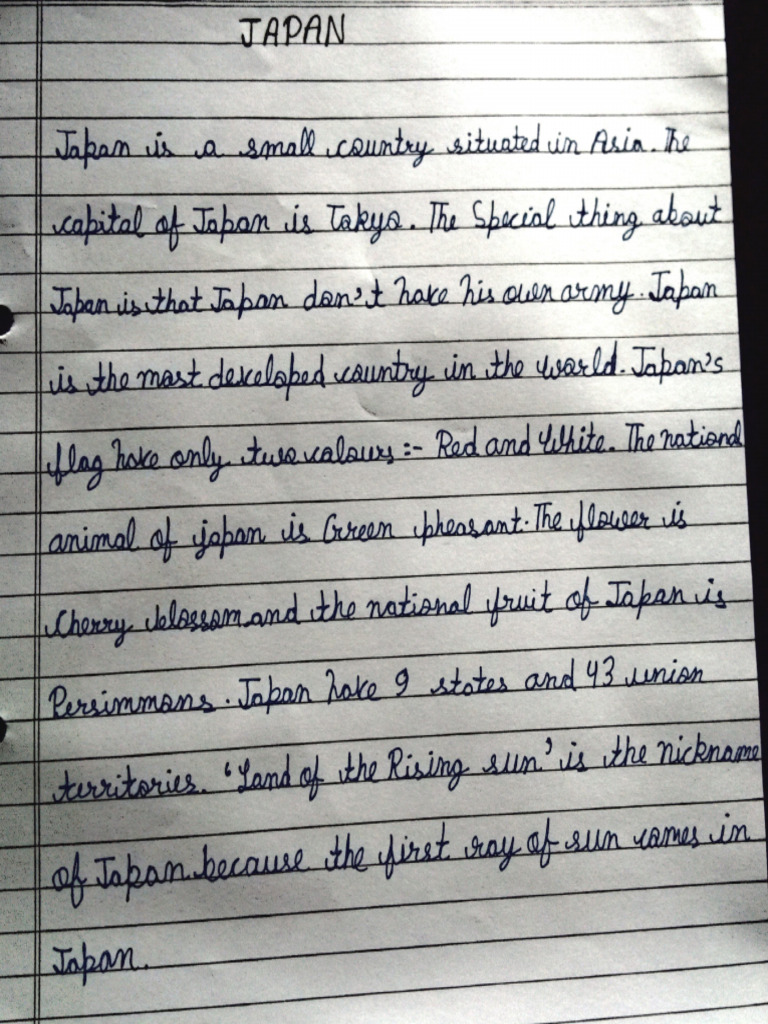 JAPAN
Japan is a small country situated in Asia. The
capital of Japan is Tokyo. The Special thing about
Japan is that Japan don't have his own army. Japan
is the most developed country in the world. Japan's
flag have only two colours :- Red and White. The national
animal of japan is Green pheasant. The flower is
Cherry blossom and the national fruit of Japan is
Persimmons. Japan have 9 states and 43 union
territories. 'Land of the Rising sun' is the nickname
of Japan because the first ray of sun comes in
Japan.